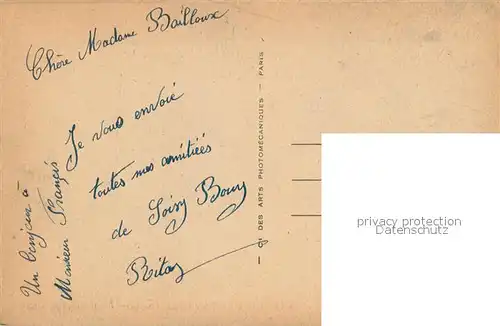 Chère Madame Bailloux
Je vous envoie
toutes mes amitiées
de Soisy Bouy
Rita
Un bonjour à
Monsieur Francis
— Cie DES ARTS PHOTOMÉCANIQUES — PARIS —
privacy protection
Datenschutz